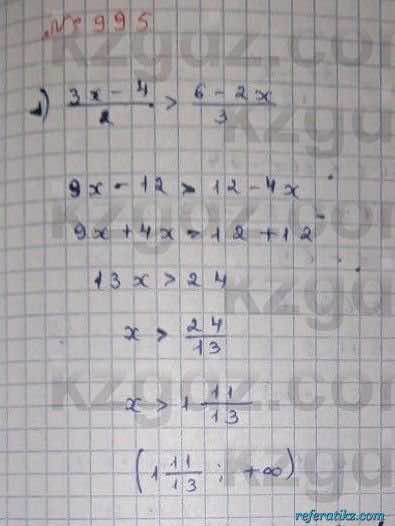 № 995
1) (3x - 4)/2 > (6 - 2x)/3
9x - 12 > 12 - 4x
9x + 4x > 12 + 12
13x > 24
x > 24/13
x > 1 11/13
(1 11/13 ; +∞)
kzgdz.com
referatikz.com